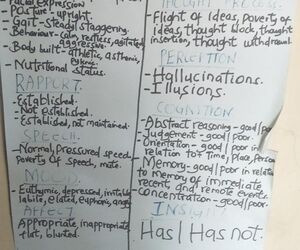 Facial expression
- Posture - upright.
- Gait - Steady, staggering.
- Behaviour - calm, restless, agitated,
aggressive.
- Body built - athletic, asthenic,
- Nutritional status.
RAPPORT.
- Established.
- Not established.
- Established, not maintained.
SPEECH.
- Normal, pressured speech,
poverty of speech, mute.
MOOD.
- Euthymic, depressed, irritable
labile, elated, euphoric, angry
AFFECT
Appropriate, inappropriate,
flat, blunted.
THOUGHT PROCESS.
- Flight of ideas, poverty of
ideas, thought block, thought
insertion, thought withdrawal.
PERCEPTION
- Hallucinations.
- Illusions.
COGNITION
- Abstract reasoning - good/poor
- Judgement - good/poor
- Orientation - good/poor in
relation to: time, place, person
- Memory - good/poor in relation
to memory of immediate
recent and remote events.
- Concentration - good/poor.
INSIGHT
Has/Has not.